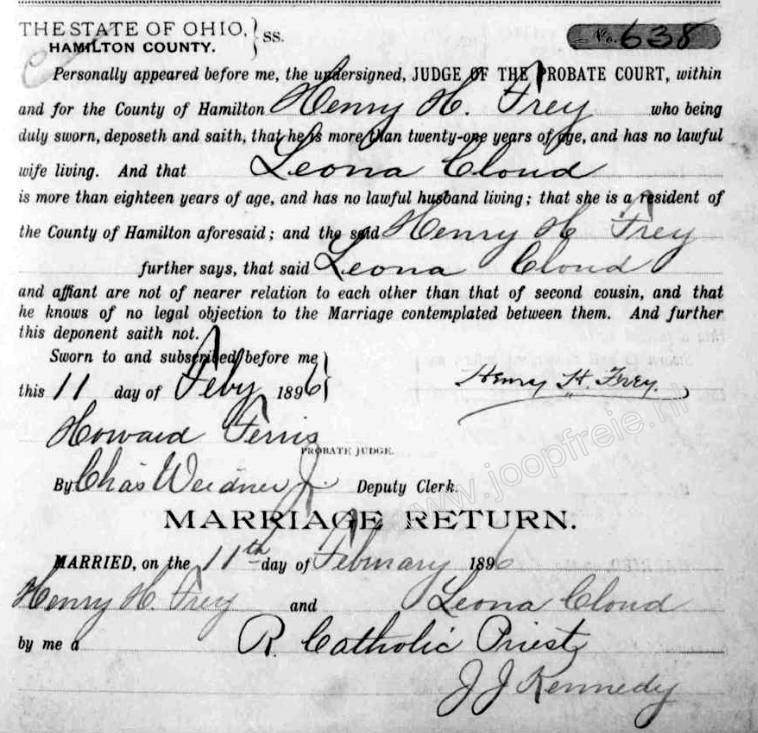 THE STATE OF OHIO, } SS.
HAMILTON COUNTY.
No. 638
Personally appeared before me, the undersigned, JUDGE OF THE PROBATE COURT, within
and for the County of Hamilton Henry H. Frey who being
duly sworn, deposeth and saith, that he is more than twenty-one years of age, and has no lawful
wife living. And that Leona Cloud
is more than eighteen years of age, and has no lawful husband living; that she is a resident of
the County of Hamilton aforesaid; and the said Henry H Frey
further says, that said Leona Cloud
and affiant are not of nearer relation to each other than that of second cousin, and that
he knows of no legal objection to the Marriage contemplated between them. And further
this deponent saith not.
Sworn to and subscribed before me
this 11 day of Feby 1896 } Henry H. Frey.
Howard Ferris
PROBATE JUDGE.
By Chas Weidner Jr Deputy Clerk.
www.joopfreie.nl
MARRIAGE RETURN.
MARRIED, on the 11th day of February 1896
Henry H. Frey and Leona Cloud
by me a R. Catholic Priest
J J Kennedy